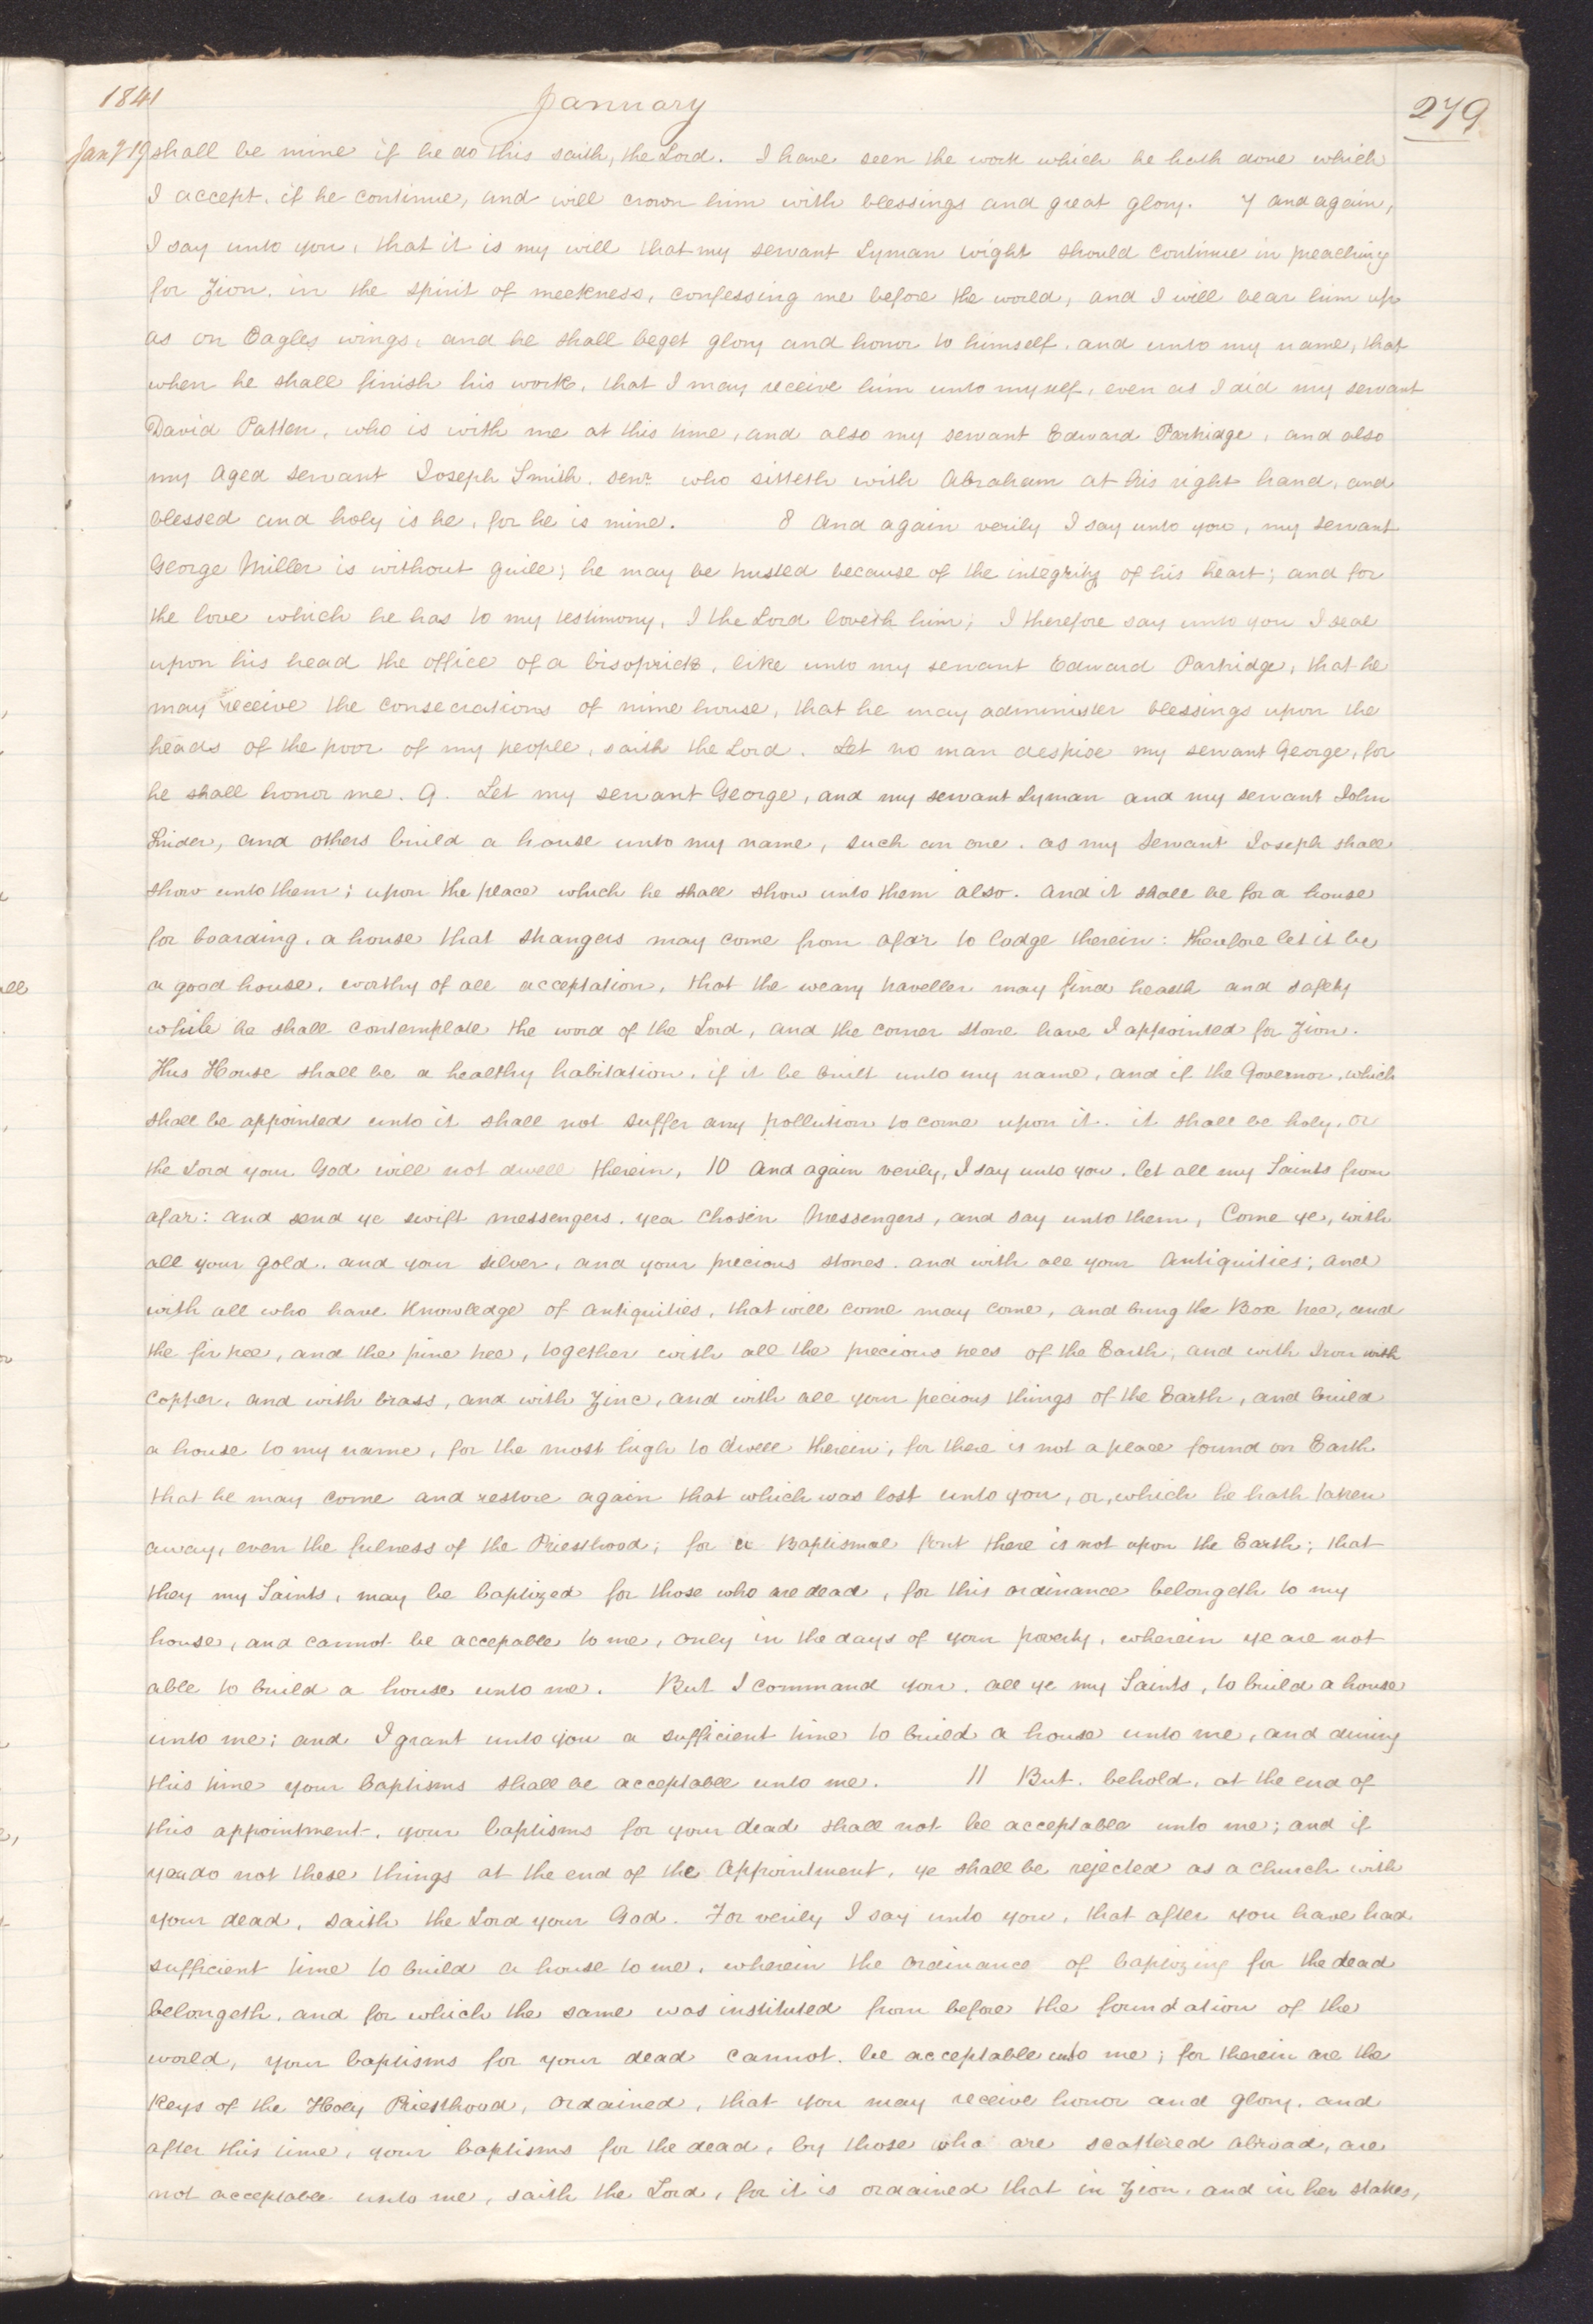 1841 January 279
Jany 19 shall be mine if he do this saith, the Lord. I have seen the work which he hath done which
I accept, if he continue, and will crown him with blessings and great glory. 7 and again,
I say unto you, that it is my will that my servant Lyman Wight should continue in preaching
for Zion, in the spirit of meekness, confessing me before the world, and I will bear him up
as on Eagles wings, and he shall beget glory and honor to himself, and unto my name, that
when he shall finish his work, that I may receive him unto myself, even as I did my servant
David Patten, who is with me at this time, and also my servant Edward Partridge, and also
my aged servant Joseph Smith. senr. who sitteth with Abraham at his right hand, and
blessed and holy is he, for he is mine. 8 And again verily I say unto you, my servant
George Miller is without guile; he may be trusted because of the integrity of his heart; and for
the love which he has to my testimony, I the Lord loveth him; I therefore say unto you I seal
upon his head the office of a bisoprick, like unto my servant Edward Partridge, that he
may receive the consecrations of mine house, that he may administer blessings upon the
heads of the poor of my people, saith the Lord. Let no man despise my servant George, for
he shall honor me. 9. Let my servant George, and my servant Lyman and my servant John
Snider, and others build a house unto my name, such an one. as my servant Joseph shall
show unto them; upon the place which he shall show unto them also. And it shall be for a house
for boarding, a house that strangers may come from afar to lodge therein: therefore let it be
a good house, worthy of all acceptation, that the weary traveller may find health and safety
while he shall contemplate the word of the Lord, and the corner stone have I appointed for Zion.
This House shall be a healthy habitation, if it be built unto my name, and if the Governor, which
shall be appointed unto it shall not suffer any pollution to come upon it. it shall be holy, or
the Lord your God will not dwell therein, 10 And again verily, I say unto you. let all my Saints from
afar: and send ye swift messengers. yea chosen Messengers, and say unto them, Come ye, with
all your gold, and your silver, and your precious stones. and with all your Antiquities; and
with all who have knowledge of antiquities, that will come may come, and bring the Box tree, and
the fir tree, and the pine tree, together with all the precious trees of the Earth, and with Iron with
copper, and with brass, and with Zinc, and with all your pecious things of the Earth, and build
a house to my name, for the most high to dwell therein; for there is not a place found on Earth
that he may come and restore again that which was lost unto you, or, which he hath taken
away, even the fulness of the Priesthood; for a Baptismal font there is not upon the Earth; that
they my Saints, may be baptized for those who are dead, for this ordinance belongeth to my
house, and cannot be accepable to me, only in the days of your poverty, wherein ye are not
able to build a house unto me. But I command you. all ye my Saints, to build a house
unto me; and I grant unto you a sufficient time to build a house unto me, and during
this time your baptisms shall be acceptable unto me. 11 But. behold, at the end of
this appointment, your baptisms for your dead shall not be acceptable unto me; and if
you do not these things at the end of the Appointment, ye shall be rejected as a church with
your dead, saith the Lord your God. For verily I say unto you, that after you have had
sufficient time to build a house to me, wherein the ordinance of baptizing for the dead
belongeth, and for which the same was instituted from before the foundation of the
world, your baptisms for your dead cannot. be acceptable unto me; for therein are the
Keys of the Holy Priesthood, ordained, that you may receive honor and glory. and
after this time, your baptisms for the dead, by those who are scattered abroad, are
not acceptable unto me, saith the Lord, for it is ordained that in Zion, and in her stakes,